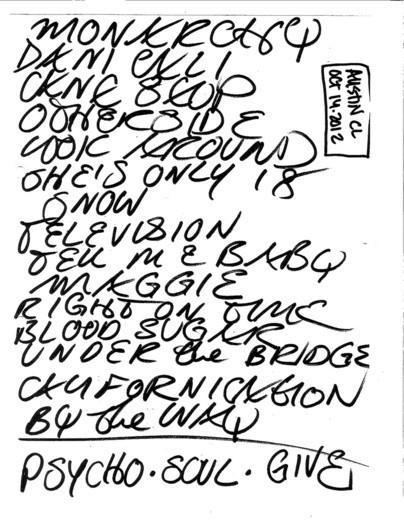 MONARCHY
DANI CALI
CANT STOP
OTHERSIDE
LOOK AROUND
SHE'S ONLY 18
SNOW
TELEVISION
TELL ME BABY
MAGGIE
RIGHT ON TIME
BLOOD SUGAR
UNDER the BRIDGE
CALIFORNICATION
BY the WAY
PSYCHO · SOUL · GIVE
AUSTIN CL
OCT 14-2012